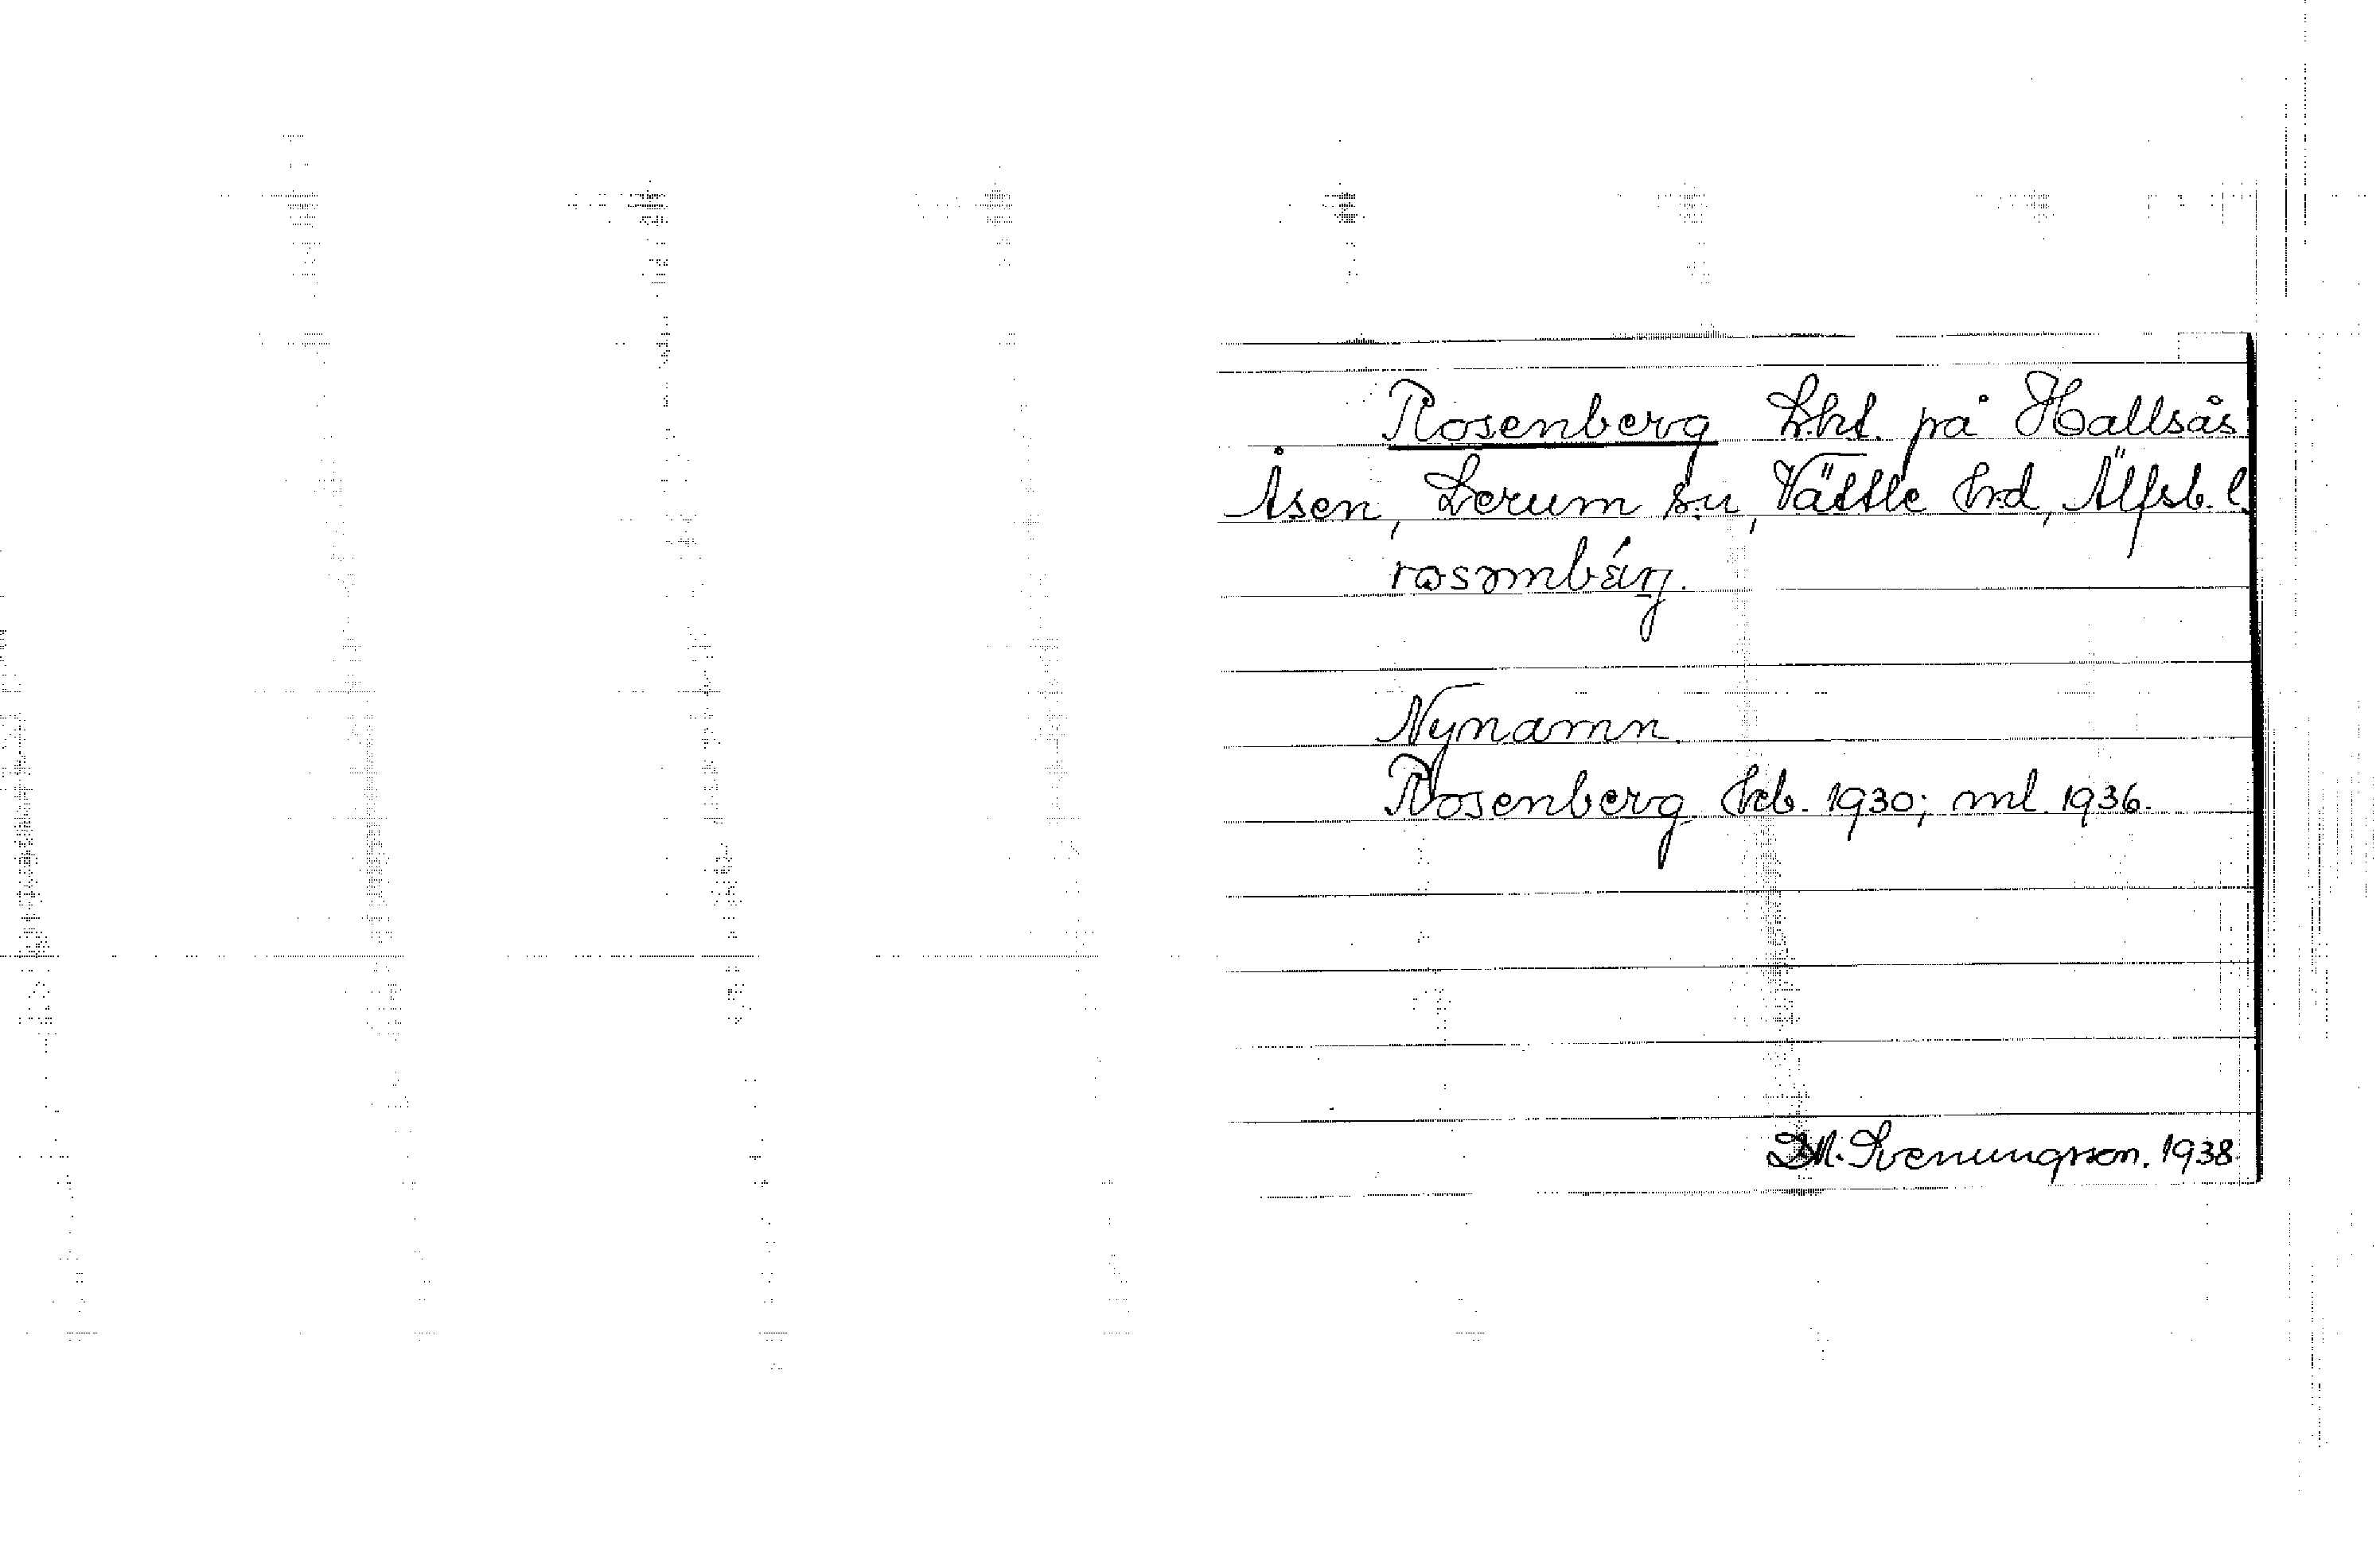 Rosenberg Lht. på Hallsås
Åsen, Lerum sn, Vättle hrd, Älfsb. l.
rosmbärj.
Nynamn.
Rosenberg hfb. 1930; ml. 1936.
D.M. Svenungsson. 1938